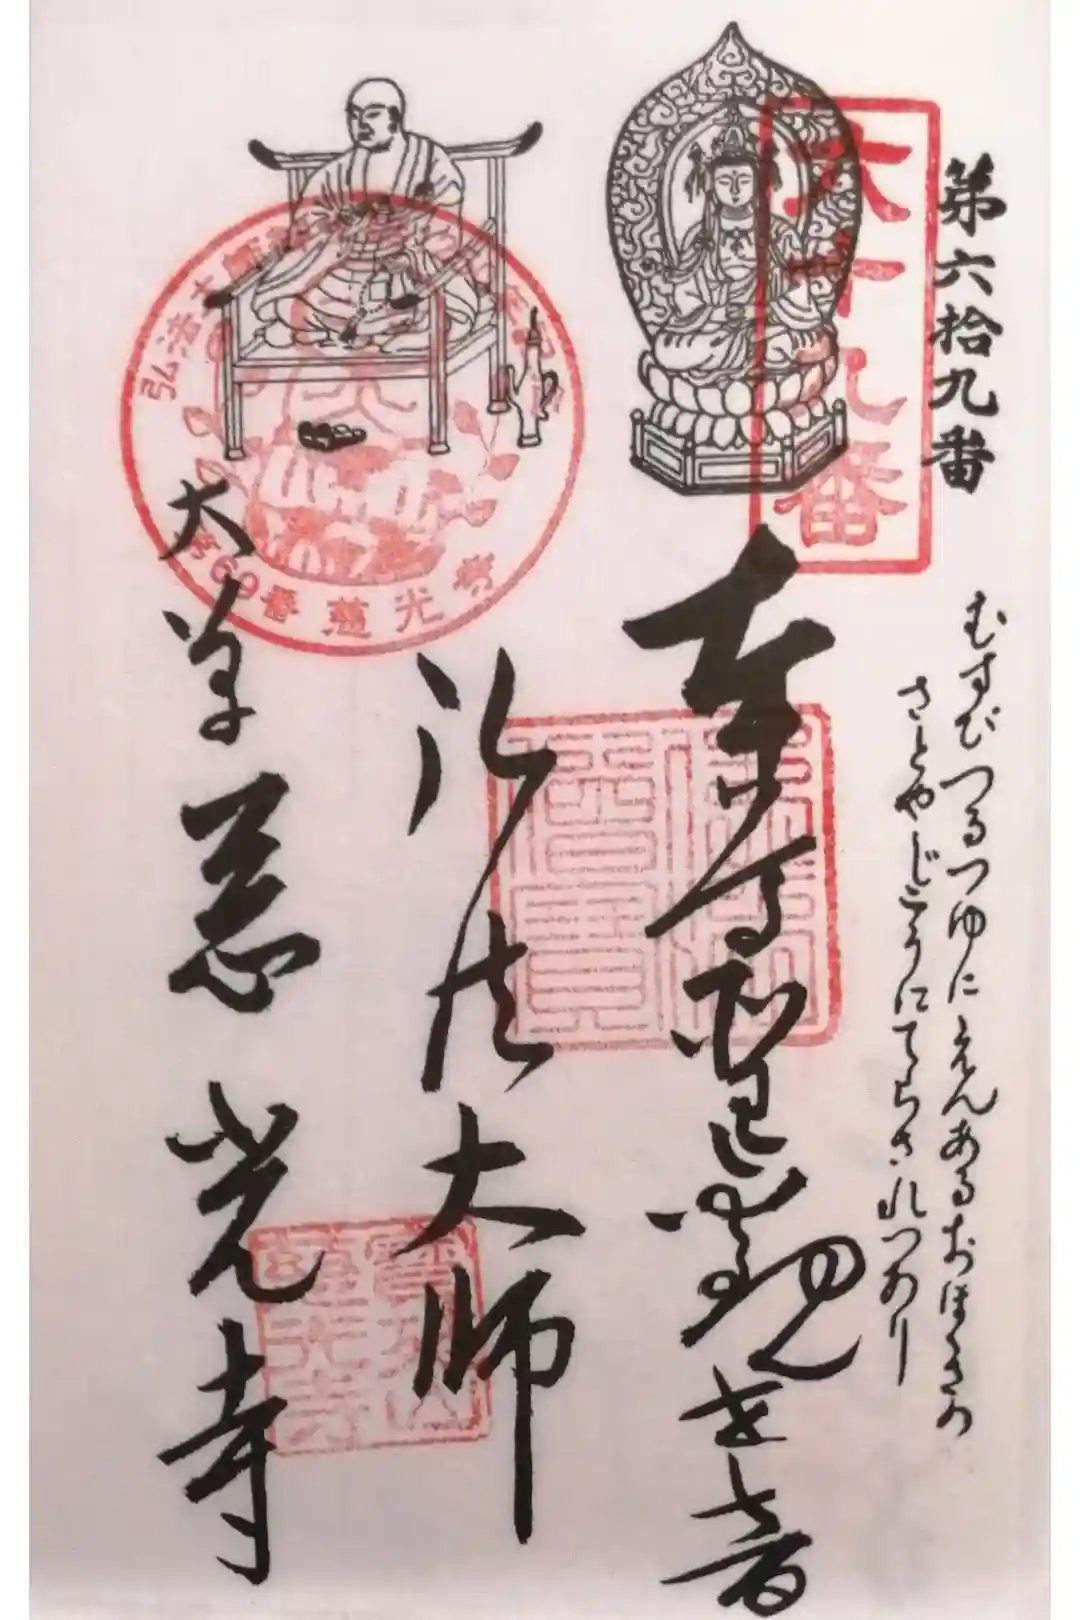 第六拾九番
六十九番
むすびつるつゆにえんあるおほくさの
さとやじこうにてらされつあり
本尊聖観世音
弘法大師
大草慈光寺
弘法大師
第69番慈光寺